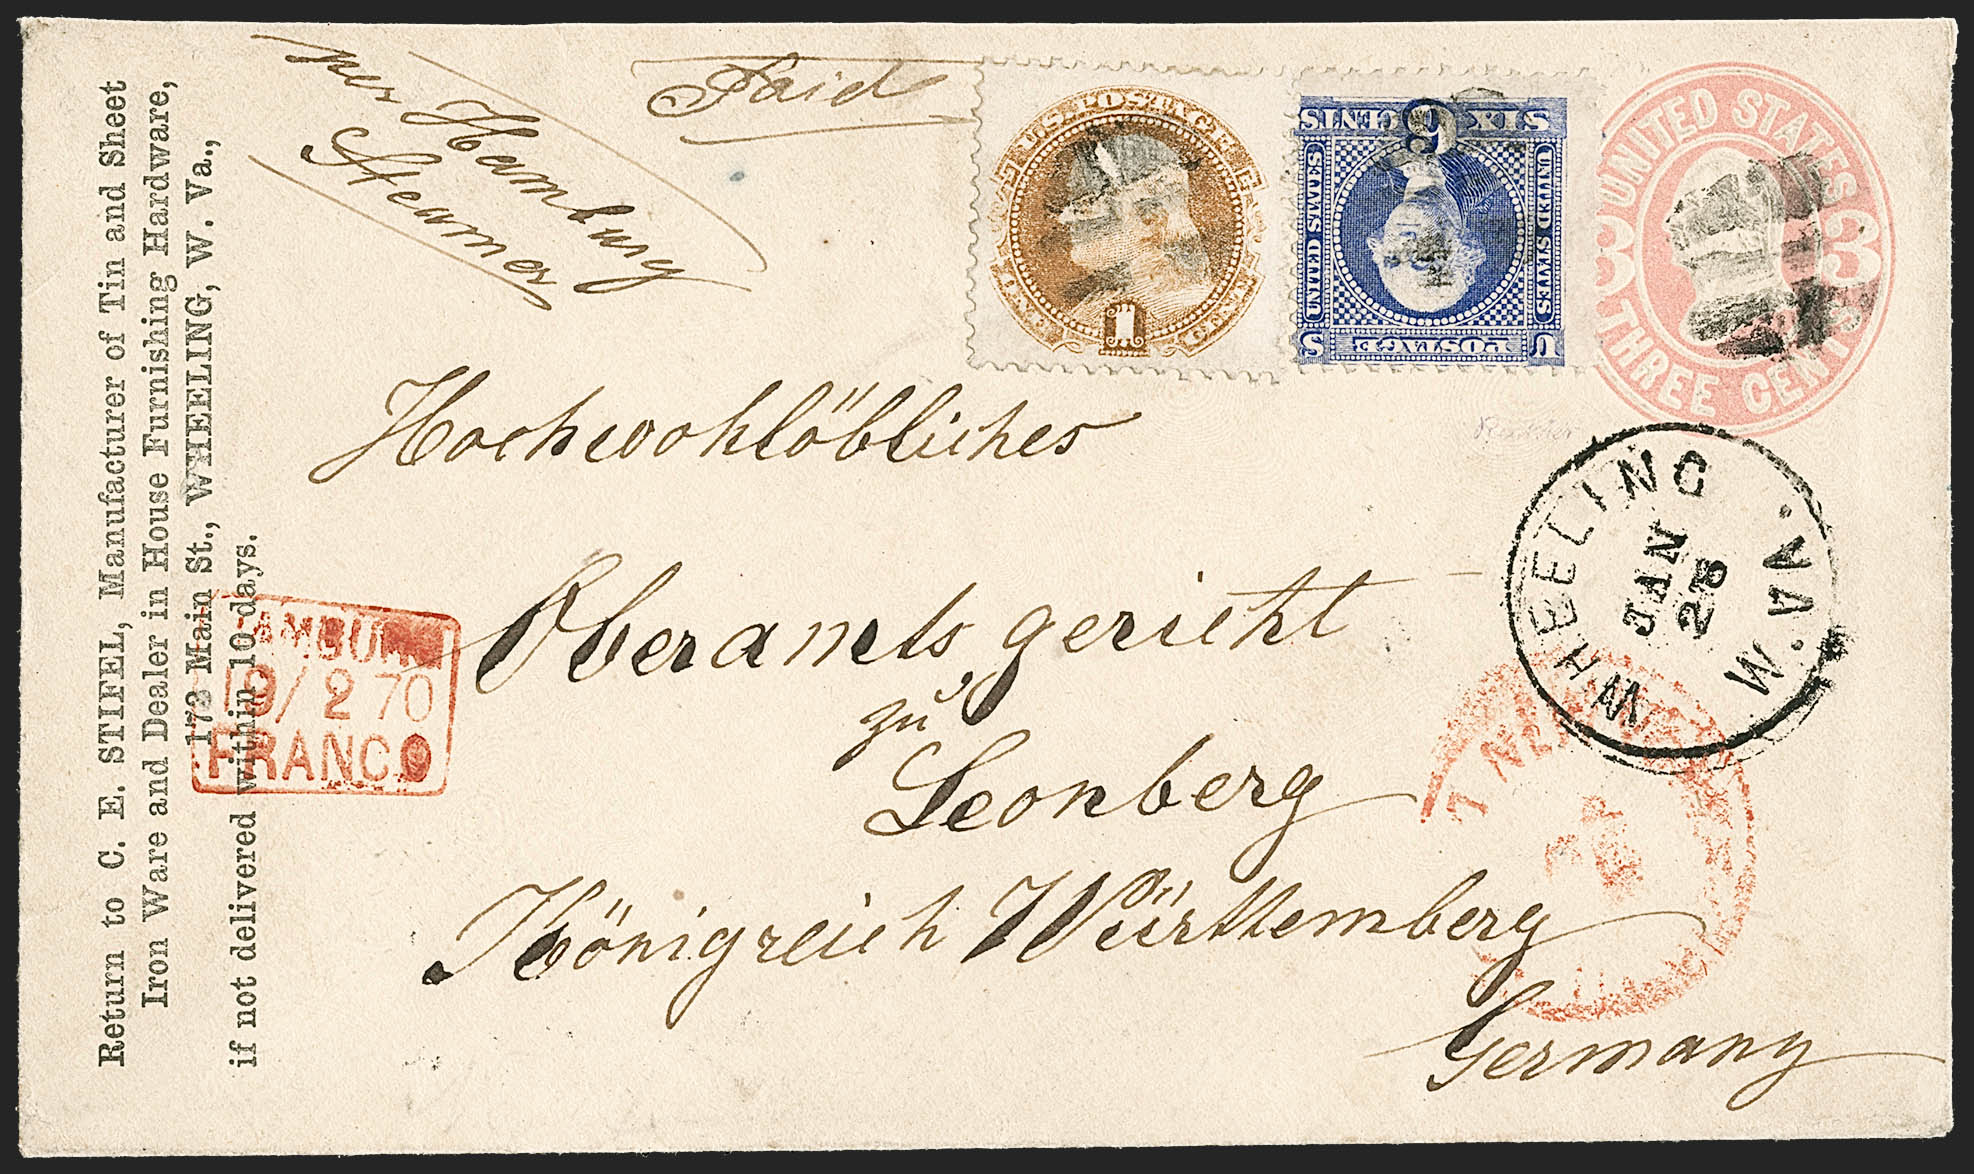 Return to C. E. STIFEL, Manufacturer of Tin and Sheet
Iron Ware and Dealer in House Furnishing Hardware,
172 Main St., WHEELING, W. Va.,
if not delivered within 10 days.
per Hamburg
Steamer
Paid
U.S. POSTAGE
ONE 1 CENT
SIX 6 CENTS
UNITED STATES
UNITED STATES
U POSTAGE S
UNITED STATES
3 3
THREE CENTS
Hochwohllöbliches
Oberamts gericht
zu
Leonberg
Königreich Württemberg
Germany
WHEELING W. VA.
JAN
25
HAMBURG
19/2 70
FRANCO